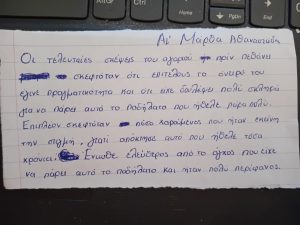 Αι' Μάρθα Αθανασιάδη
Οι τελευταίες σκέψεις του αγοριού πριν πεθάνει
σκεφτόταν ότι επιτέλους το όνειρό του
έγινε πραγματικότητα και ότι είχε δουλέψει πολύ σκληρά
για να πάρει αυτό το ποδήλατο που ήθελε πάρα πολύ.
Επιπλέον σκεφτόταν πόσο χαρούμενος που ήταν εκείνη
την στιγμή, γιατί απόκτησε αυτό που ήθελε τόσα
χρόνια. Ένιωθε ελεύθερος από το άγχος που είχε
να πάρει αυτό το ποδήλατο και ήταν πολύ περήφανος.